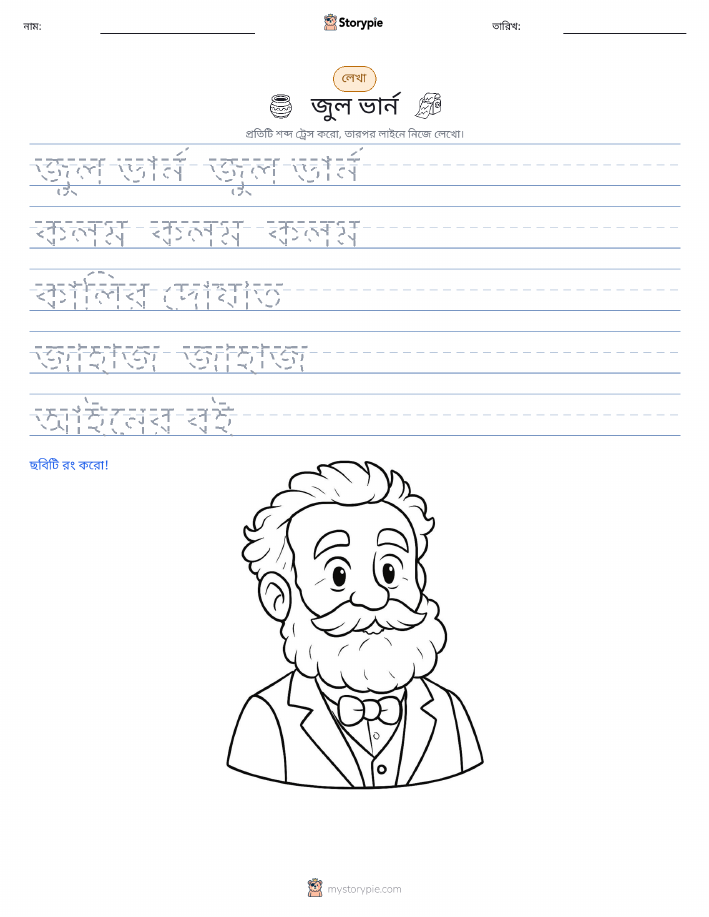 নাম:
Storypie
তারিখ:
লেখা
জুল ভার্ন
প্রতিটি শব্দ ট্রেস করো, তারপর লাইনে নিজে লেখো।
জুল ভার্ন জুল ভার্ন
কলম কলম কলম
কালির দোয়াত
জাহাজ জাহাজ
আইনের বই
ছবিটি রং করো!
mystorypie.com